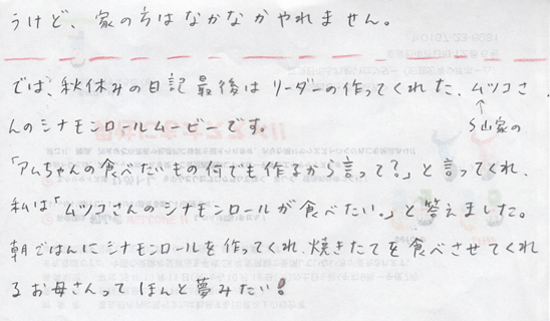 うけど、家の方はなかなかやれません。
では、秋休みの日記最後はリーダーの作ってくれた、ムツコさ
んのシナモンロールムービーです。
↑
S山家の
「アムちゃんの食べたいもの何でも作るから言って?」と言ってくれ、
私は「ムツコさんのシナモンロールが食べたい。」と答えました。
朝ごはんにシナモンロールを作ってくれ、焼きたてを食べさせてくれ
るお母さんってほんと夢みたい!